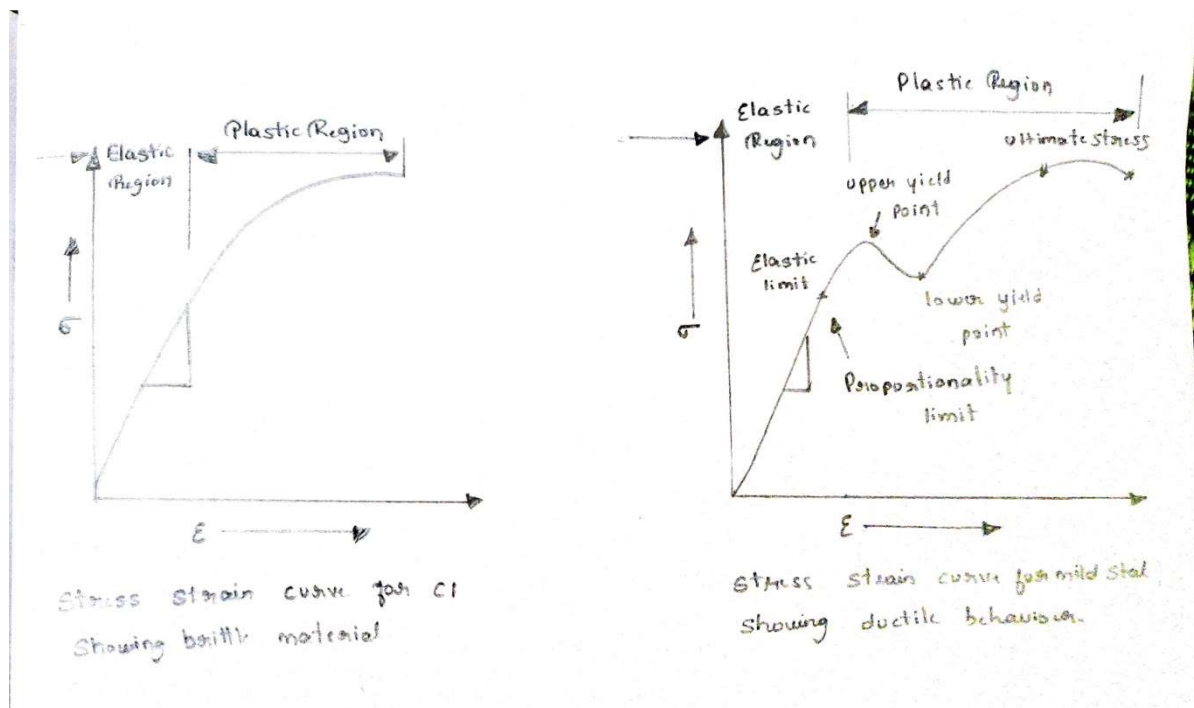 Plastic Region
Elastic
Region
σ
ε
Stress strain curve for CI
Showing brittle material
Plastic Region
Elastic
Region
ultimate stress
upper yield
point
Elastic
limit
lower yield
point
σ
Proportionality
limit
ε
Stress strain curve for mild Stal
Showing ductile behaviour.